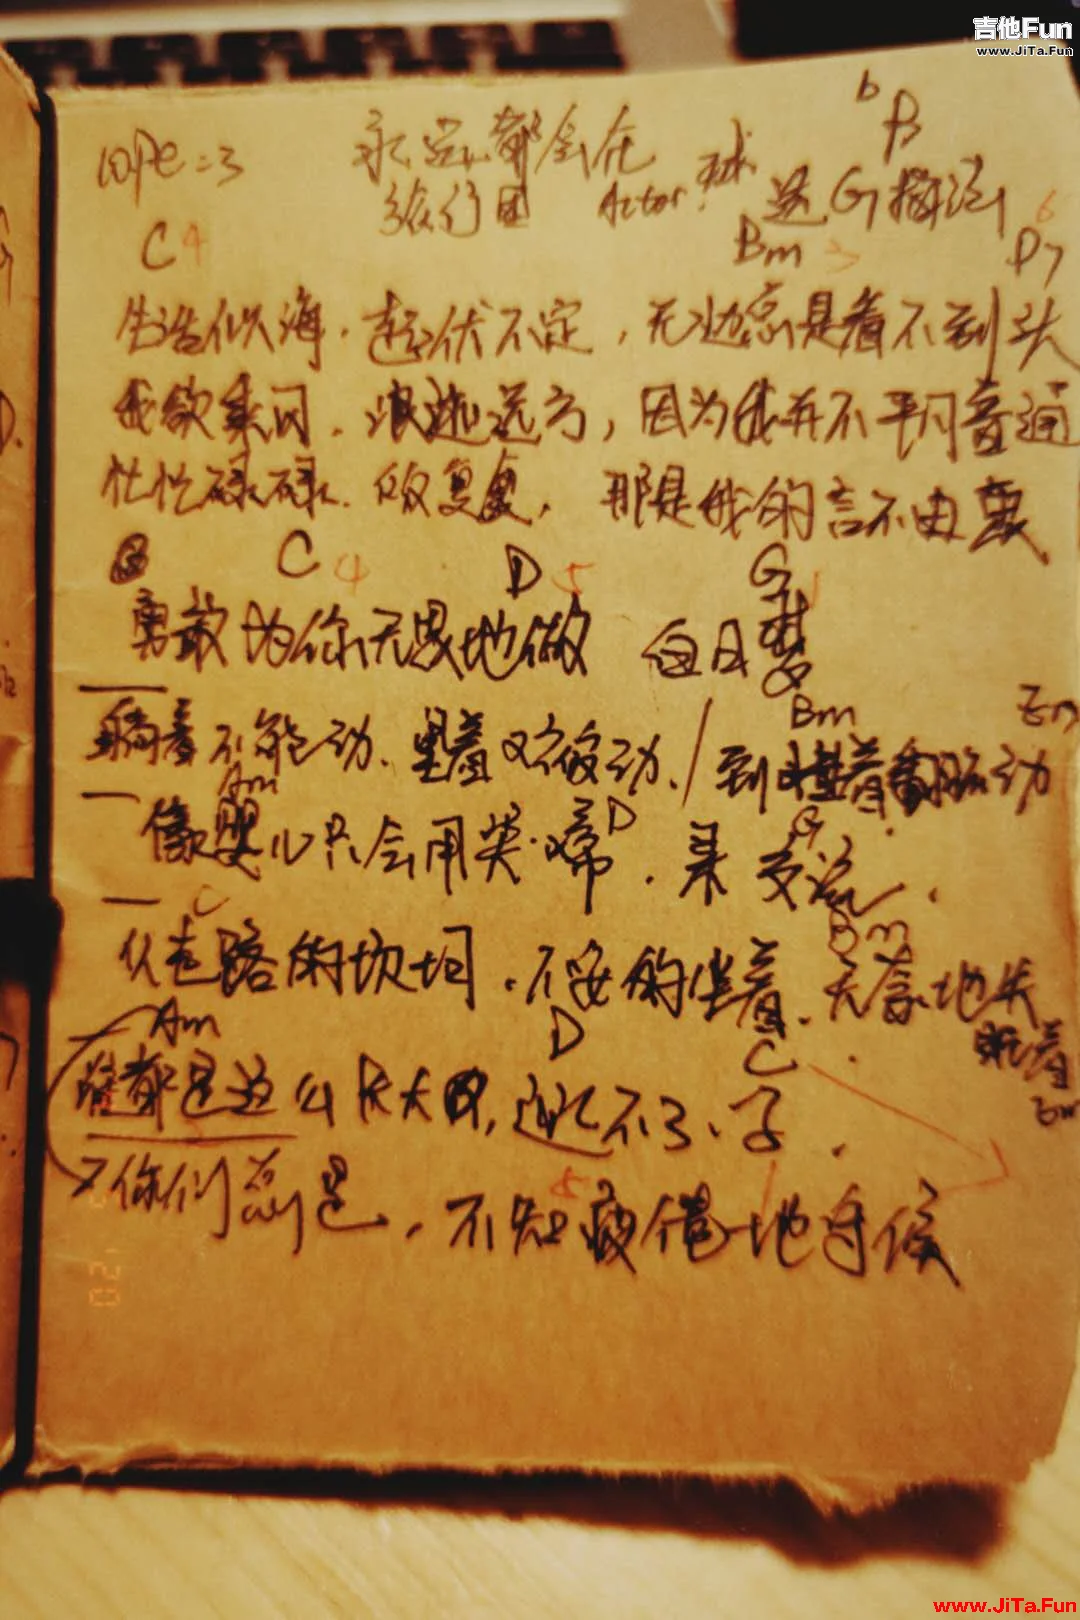 吉他Fun
www.JiTa.Fun
永远都会在 b B
cope=3 旅行团 Actor: 选G指法
C 4 Bm 3 D7 6
生活似海.起伏不定,无边总是看不到头
我欲乘风.浪迹远方,因为我并不平凡普通
忙忙碌碌.反反复复,那是我的言不由衷
C 4 D 5 G 1
勇敢为你无畏地做 白日梦
Bm Em
躺着不能动.坐着又不敢动./到
Am D G
像婴儿只会用哭啼.来交流.
C Bm
从走路的坎坷.不安的坐着.无禁地失
眠着
Am D C Em
都是这么长大的,逃不了.子.
你们总是,不知疲倦地守候
5 1
www.JiTa.Fun